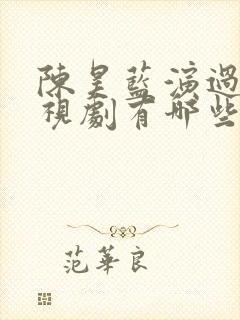 陳昊藍演過
視劇有哪些
范華良